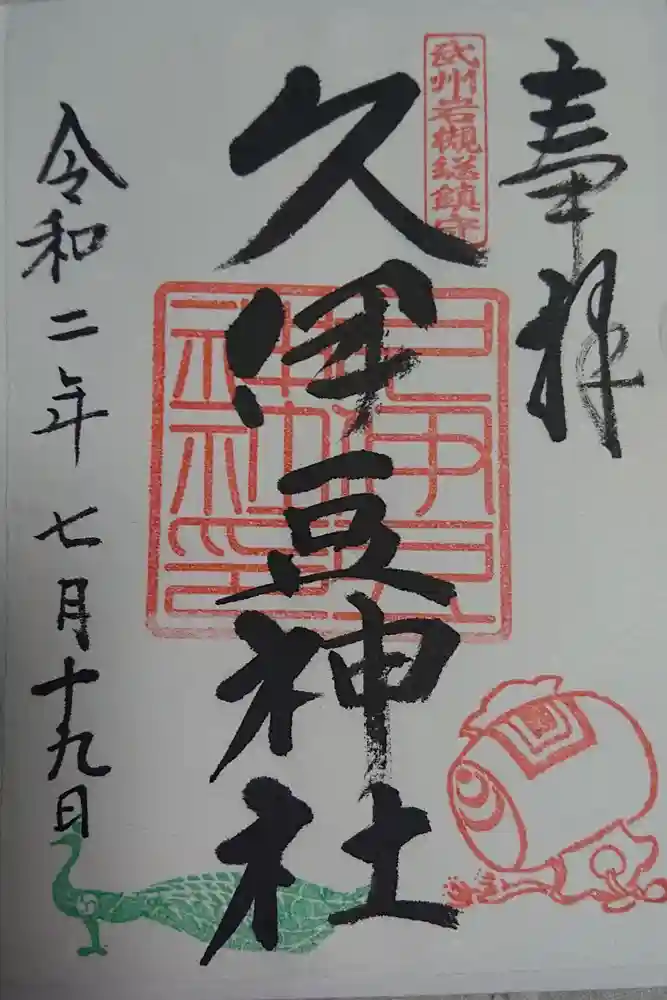 奉拝
武州岩槻総鎮守
久伊豆神社
令和二年七月十九日